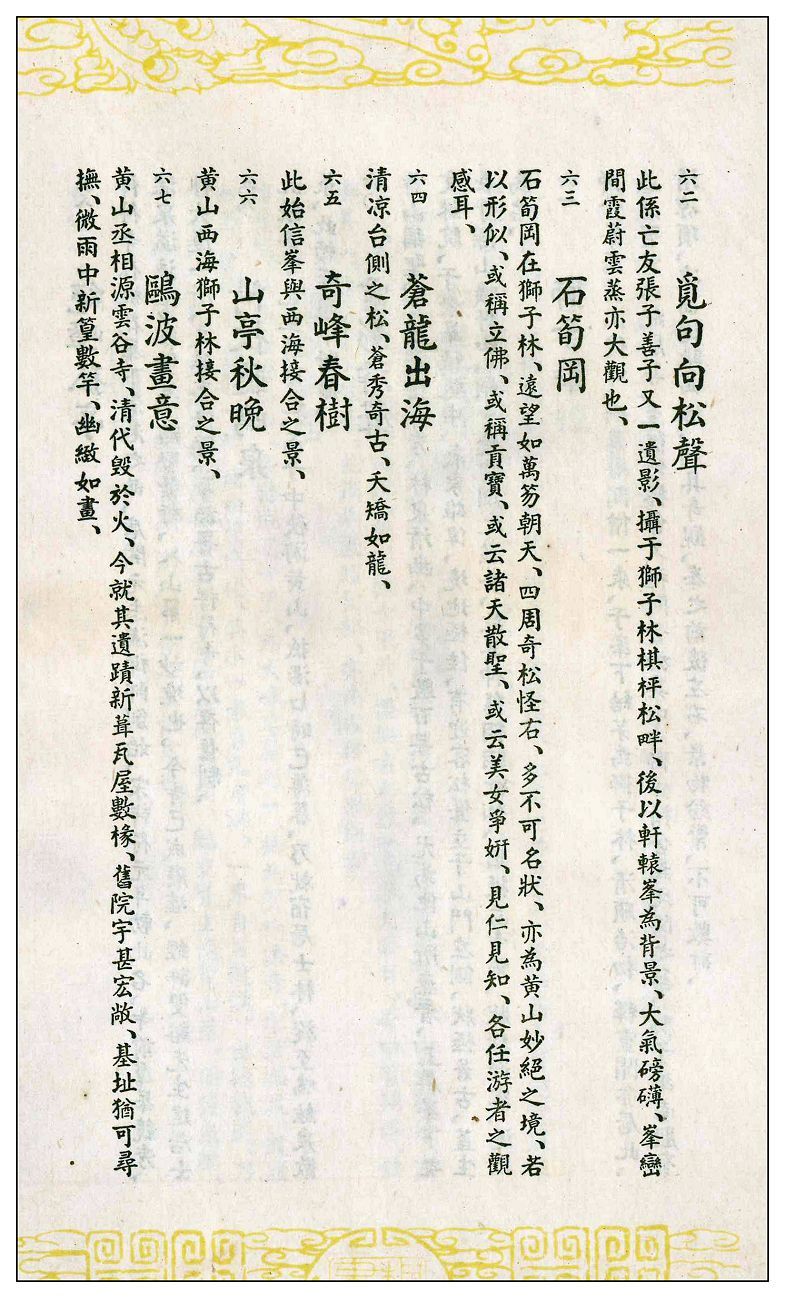 六二　覓句向松聲
此係亡友張子善子又一遺影、攝于獅子林棋枰松畔、後以軒轅峯為背景、大氣磅礴、峯巒
間霞蔚雲蒸亦大觀也、
六三　石筍岡
石筍岡在獅子林、遠望如萬笏朝天、四周奇松怪右、多不可名狀、亦為黃山妙絕之境、若
以形似、或稱立佛、或稱貢寶、或云諸天散聖、或云美女爭妍、見仁見知、各任游者之觀
感耳、
六四　蒼龍出海
清涼台側之松、蒼秀奇古、夭矯如龍、
六五　奇峰春樹
此始信峯與西海接合之景、
六六　山亭秋晚
黃山西海獅子林接合之景、
六七　鷗波畫意
黃山丞相源雲谷寺、清代毀於火、今就其遺蹟新葺瓦屋數椽、舊院宇甚宏敞、基址猶可尋
撫、微雨中新篁數竿、幽緻如畫、